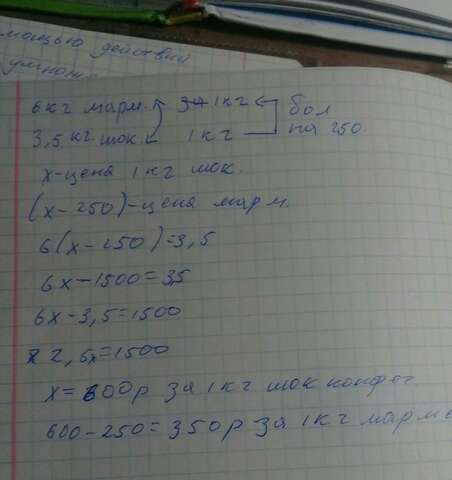 мощью действий
умнож
6 кг марм. 1 кг бол
3,5 кг. шок. 1 кг на 250
x-цена 1 кг шок.
(x-250)-цена марм.
6(x-250)=3,5
6x-1500=3,5
6x-3,5=1500
x 2,5x=1500
x=600р за 1 кг шок конфет.
600-250=350р за 1 кг марм